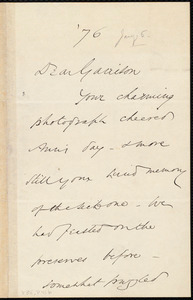 '76
Dear Garrison
Your charming
photograph cheered
Ann's day - & more
still your kind memory
of the  one - We
had feasted on the
preserves before -
somewhat puzzled